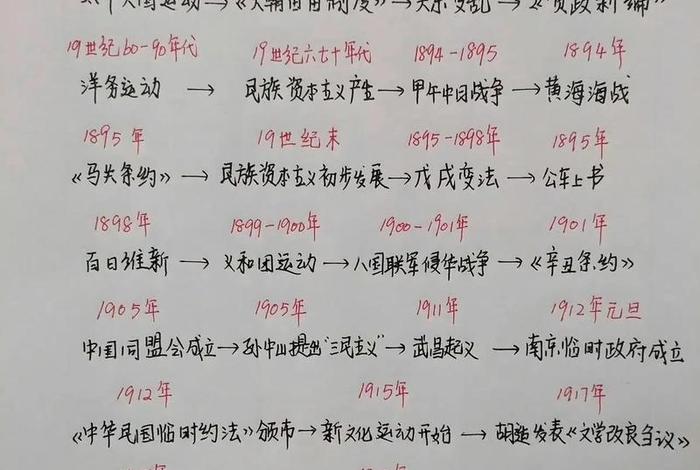 《天朝田亩制度》→天京变乱→《资政新编》
19世纪60-90年代 19世纪六七十年代 1894-1895 1894年
洋务运动 → 民族资本主义产生→甲午中日战争→黄海海战
1895年 19世纪末 1895-1898年 1895年
《马关条约》→ 民族资本主义初步发展→戊戌变法→公车上书
1898年 1899-1900年 1900-1901年 1901年
百日维新 → 义和团运动→八国联军侵华战争→《辛丑条约》
1905年 1905年 1911年 1912年元旦
中国同盟会成立→孙中山提出"三民主义"→武昌起义 →南京临时政府成立
1912年 1915年 1917年
《中华民国临时约法》颁布→新文化运动开始→胡适发表《文学改良刍议》